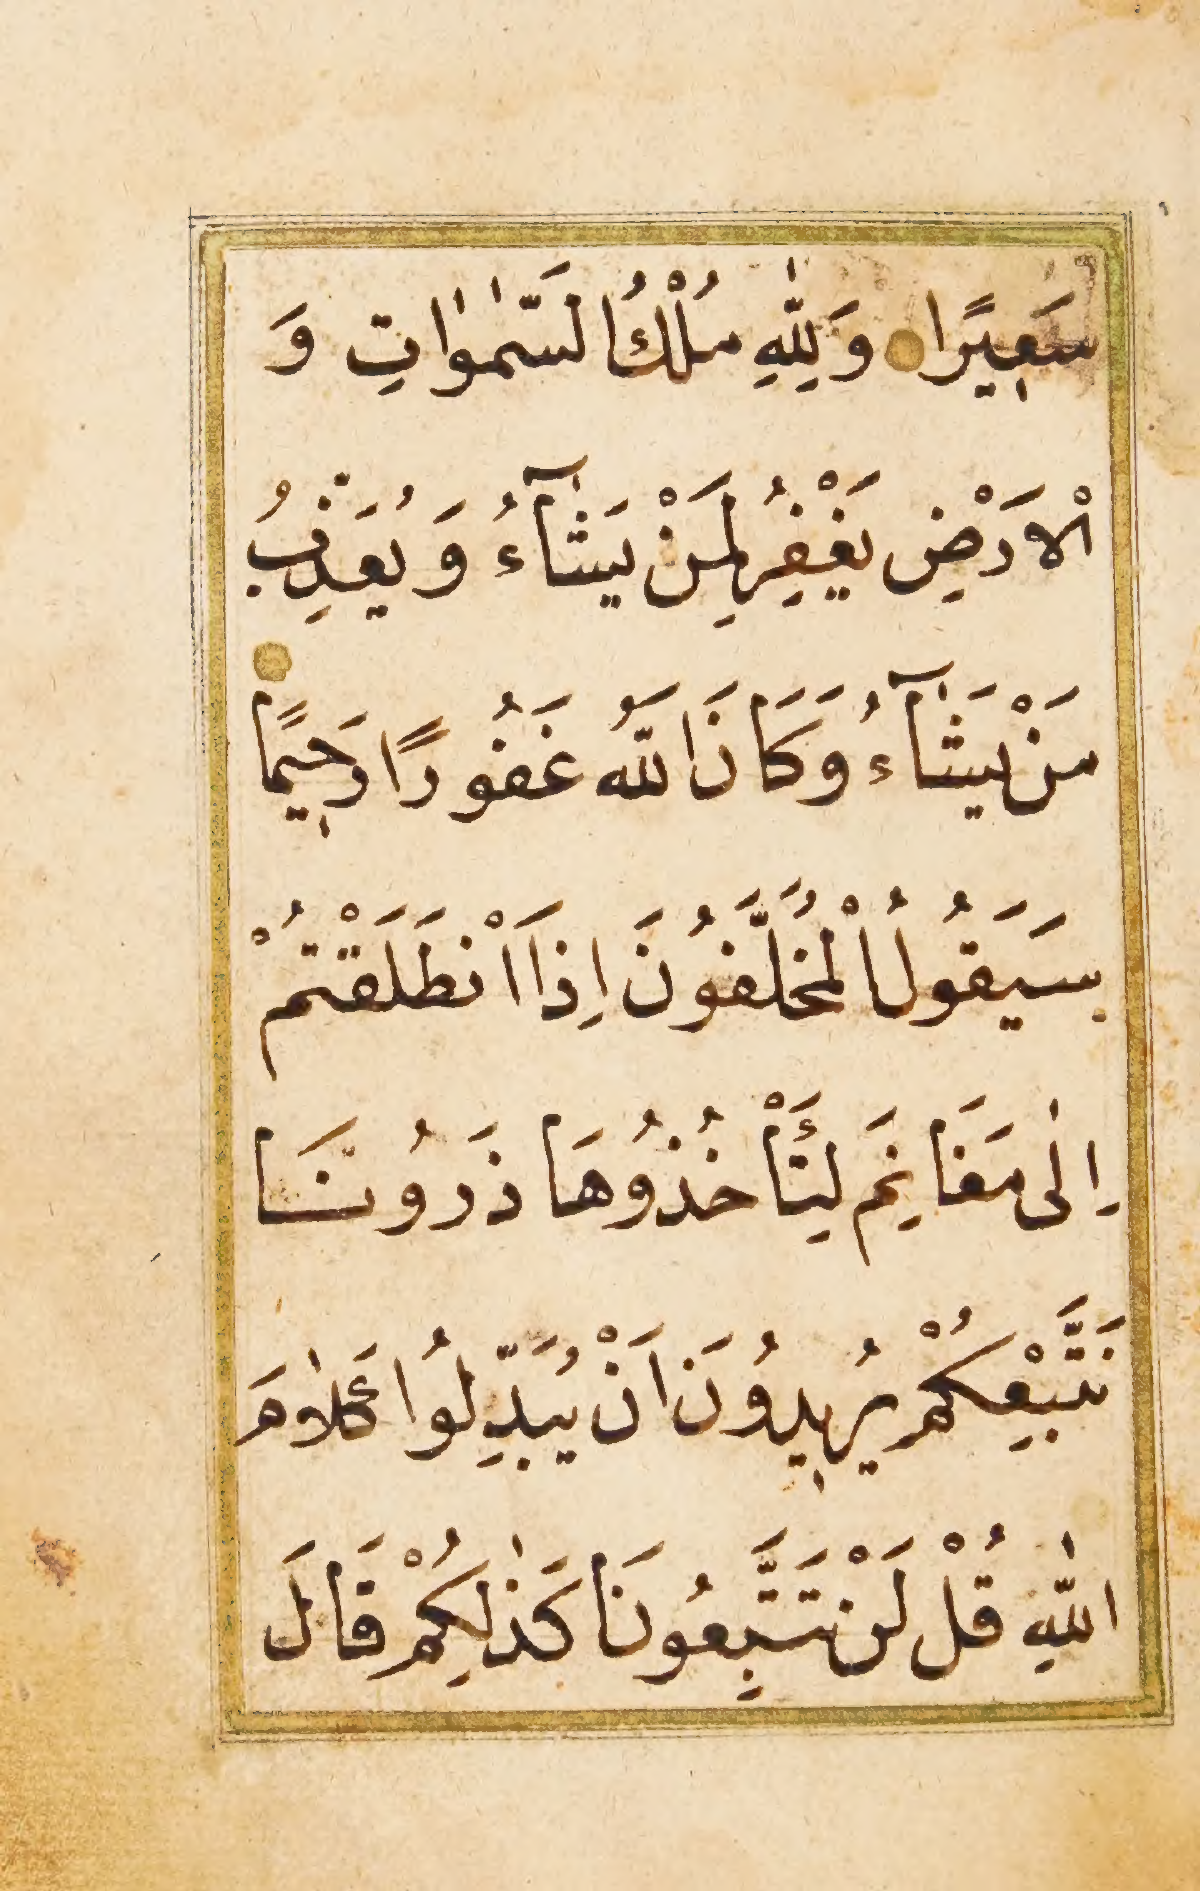 سَعٖيرًا وَلِلّٰهِ مُلْكُ السَّمٰوَاتِ وَ
الْاَرْضِ يَغْفِرُ لِمَنْ يَشَٓاءُ وَيُعَذِّبُ
مَنْ يَشَٓاءُ وَكَانَ اللّٰهُ غَفُورًا رَحٖيمًا
سَيَقُولُ الْمُخَلَّفُونَ اِذَا انْطَلَقْتُمْ
اِلٰى مَغَانِمَ لِتَأْخُذُوهَا ذَرُونَا
نَتَّبِعْكُمْ يُرٖيدُونَ اَنْ يُبَدِّلُوا كَلَامَ
اللّٰهِ قُلْ لَنْ تَتَّبِعُونَا كَذٰلِكُمْ قَالَ